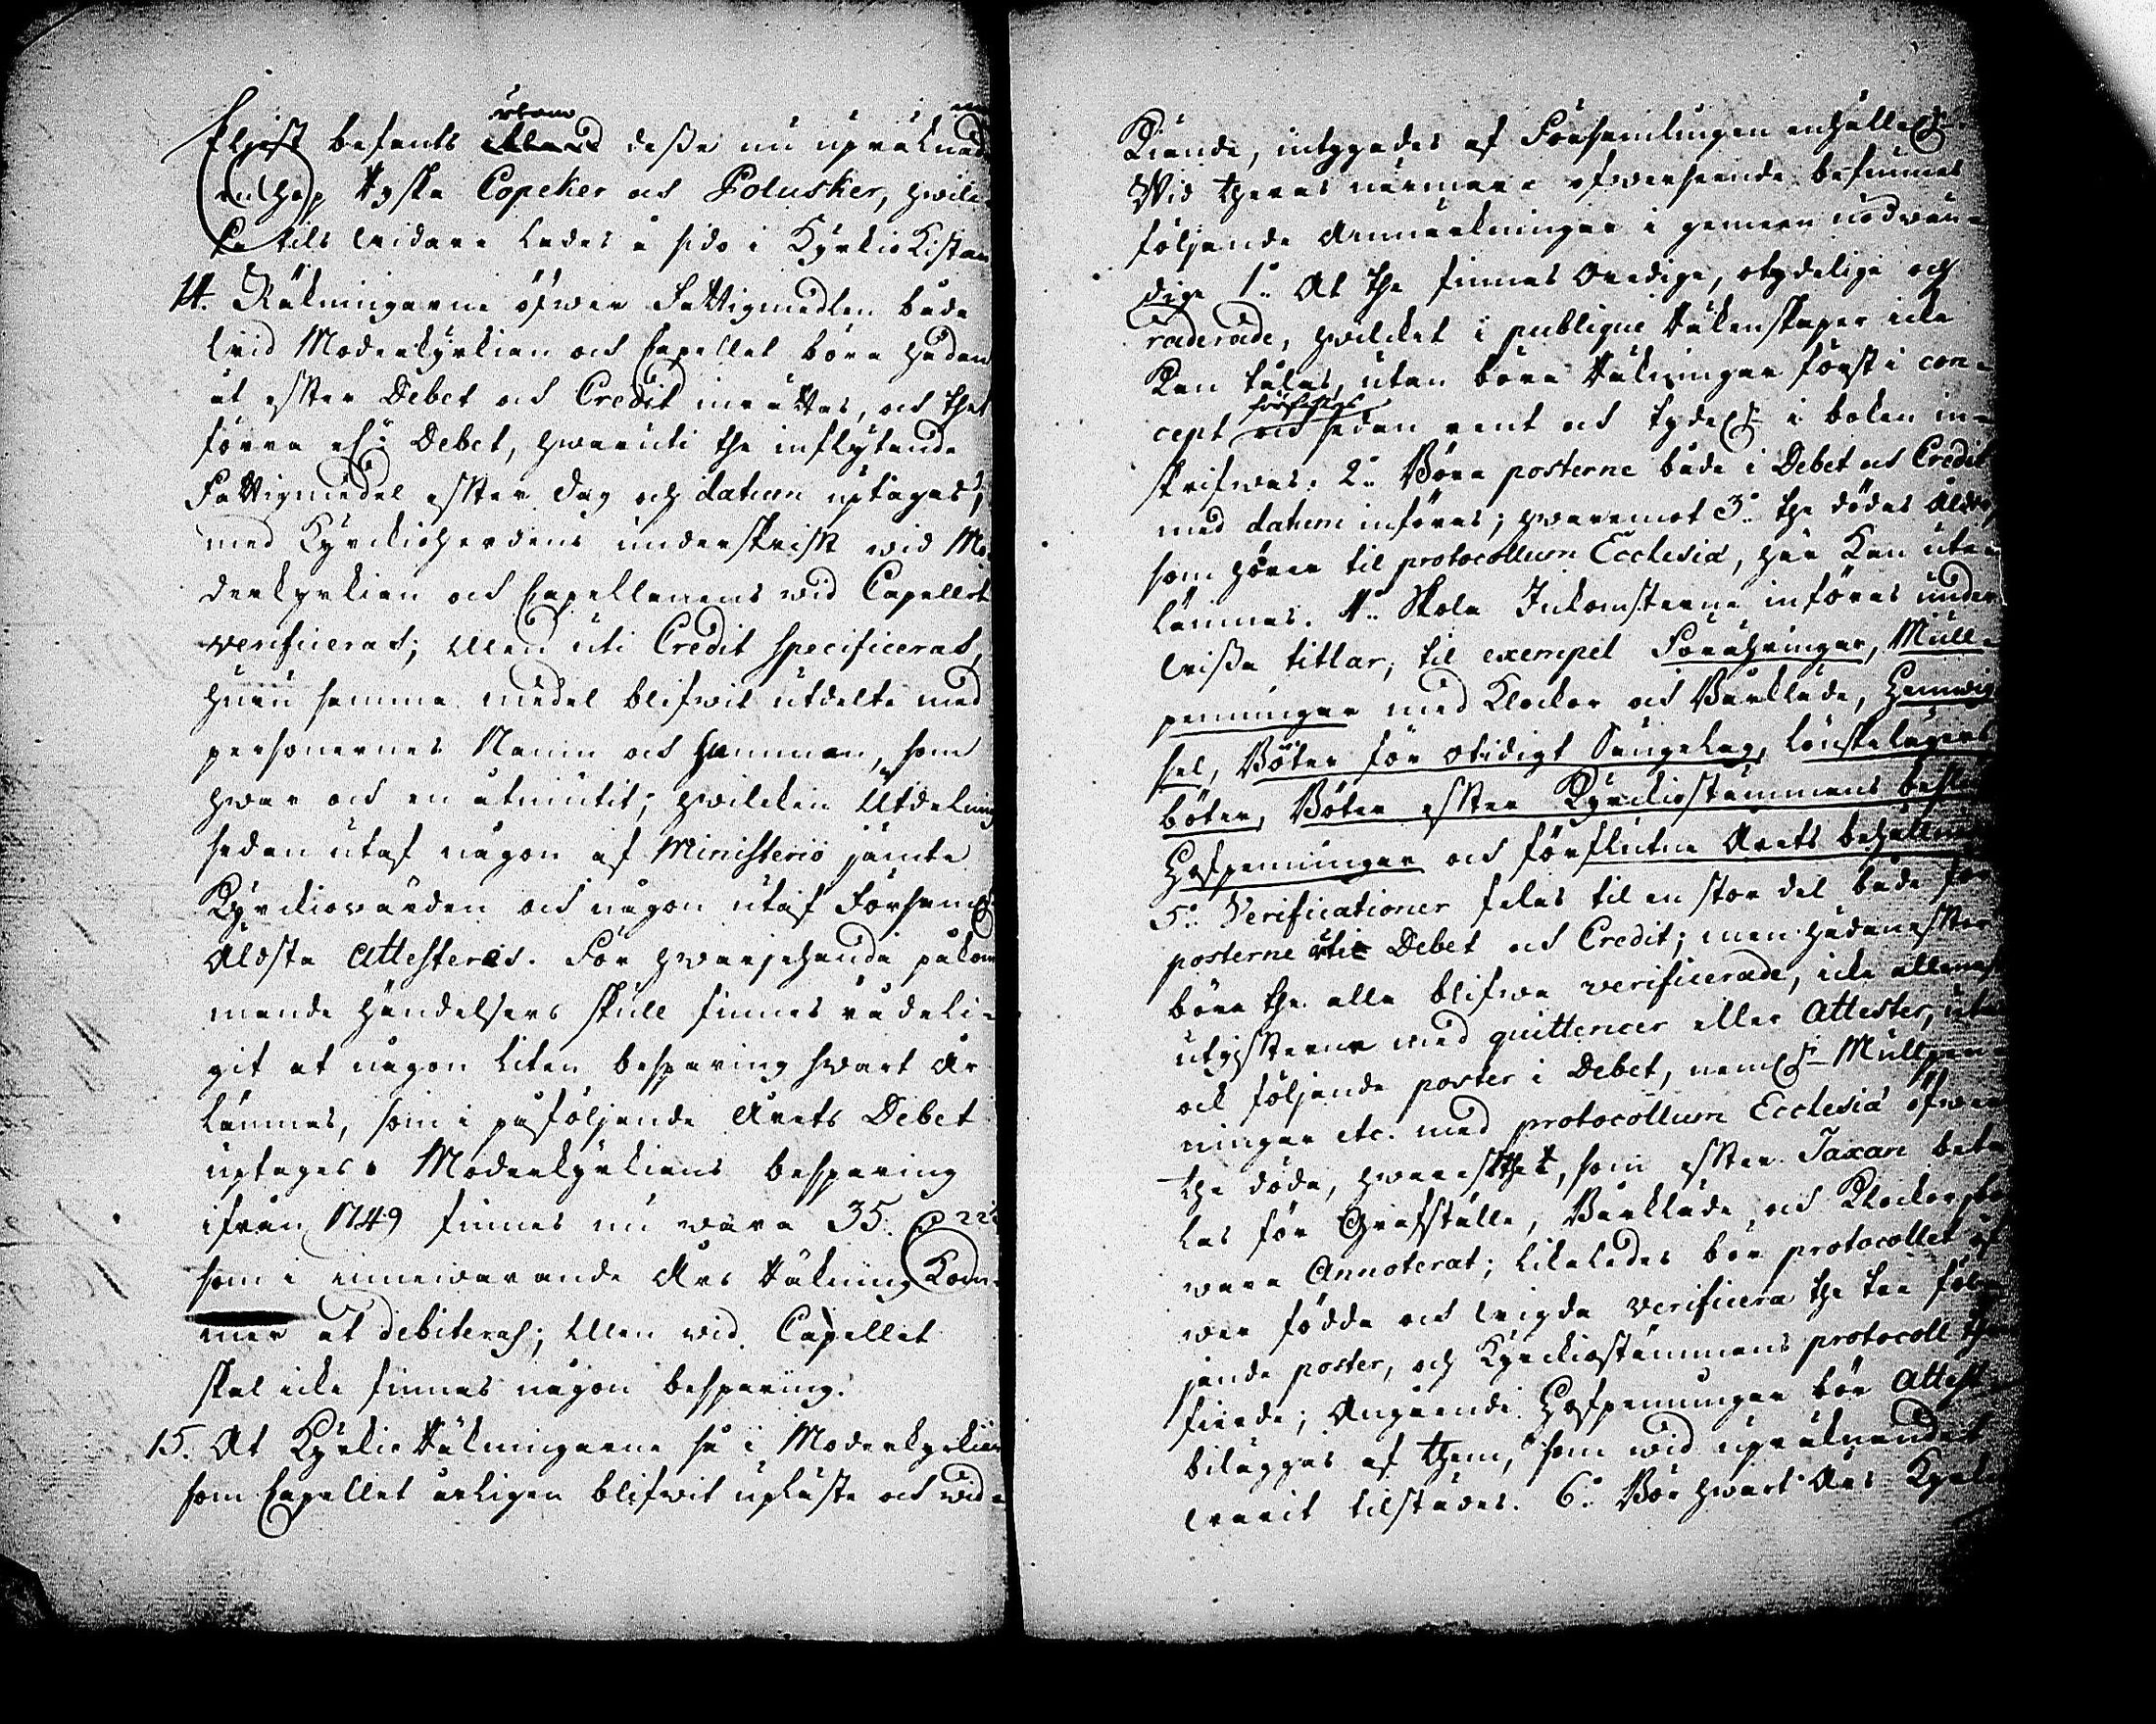 Eljest befants utom desse nu upräknade
en hop Ryska Copeker och Polusker, hwil-
ka tils widare lades å sido i Kyrkio Kistan
14. Räkningarne öfwer Fattigmedlen både
wid Moderkyrkian och Capellet böra hädan
åt efter Debet och Credit inrättas, och thet
förra el:r Debet, hwaruti the inflytande
Fattigmedel efter dag och datum uptagas,
med Kyrkioherdens underskrift wid Mo-
derkyrkian och Capellanens wid Capellet
verificeras; Men uti Credit specificeras,
huru samma medel blifwit utdelte med
personernes Namn och Summan, som
hwar och en åtniutit; hwilken Utdelning
sedan utaf någon af Ministerio jämte
Kyrkiowärden och någon utaf Församl:s
Äldsta Attesteras. För hwarjehanda påkom
mande händelsers skull finnes rådeli-
git at någon liten besparing hwart År
lämnas, som i påföljande Årets Debet
uptages. Moderkyrkians besparing
ifrån 1749 finnes nu wara 35.
som i innewarande Års Räkning Kom-
mer at debiteras; Men wid Capellet
skal icke finnas någon besparing.
15. At Kyrkio Räkningarne så i Moderkyrkian
som Capellet årligen blifwit upläste och wid-
Kiände, intygades af Församlingen enhälle:n
Wid theras närmare öfwerseende befunnes
följande Anmärkningar i gemeen nödwän-
dige 1:o At the finnas Oredige, otydelige och
raderade, hwilket i publique Räkenskaper icke
Kan tålas, utan böra Räkningar först i con-
cept författas och sedan rent och tydel:n i boken in-
skrifwas. 2:o Böra posterne både i Debet och Credit
med datum införas; hwaremot 3:o the dödas Ålder,
som hörer til protocollum Ecclesiæ, här Kan ute-
lämnas. 4:o Skola Inkomsterne införas under
wissa titlar, til exempel Förähringar, Mull-
penningar med Klockor och Bårkläde, Hemwig-
sel, Böter för otidigt Sängelag, Lönskelägers
böter, Böter efter Kyrkiostämmans beslut
Håfpenningar och förflutne Årets behållning
5:o Verificationer felas til en stor del både för
posterne uti Debet och Credit; men hädanefter
böra the alla blifwa verificerade, icke allenast
utgifterne med quittencer eller Attester, utan
ock följande poster i Debet, neml:n Mullpen-
ningar etc. med protocollum Ecclesiæ öfwer
the döda, hwarest thet, som efter Taxan beta-
las för Grafställe, Bårkläde och Klockor ska
wara Annoterat; likaledes bör protocollet öf-
wer födda och wigda verificera the tre föl-
jande poster, och Kyrkiostämmans protocoll then
fierde; Angående Håfpenningar bör Attest
biläggas af them, som wid upräknandet
warit tilstädes. 6:o Bör hwart Års Kyrkio